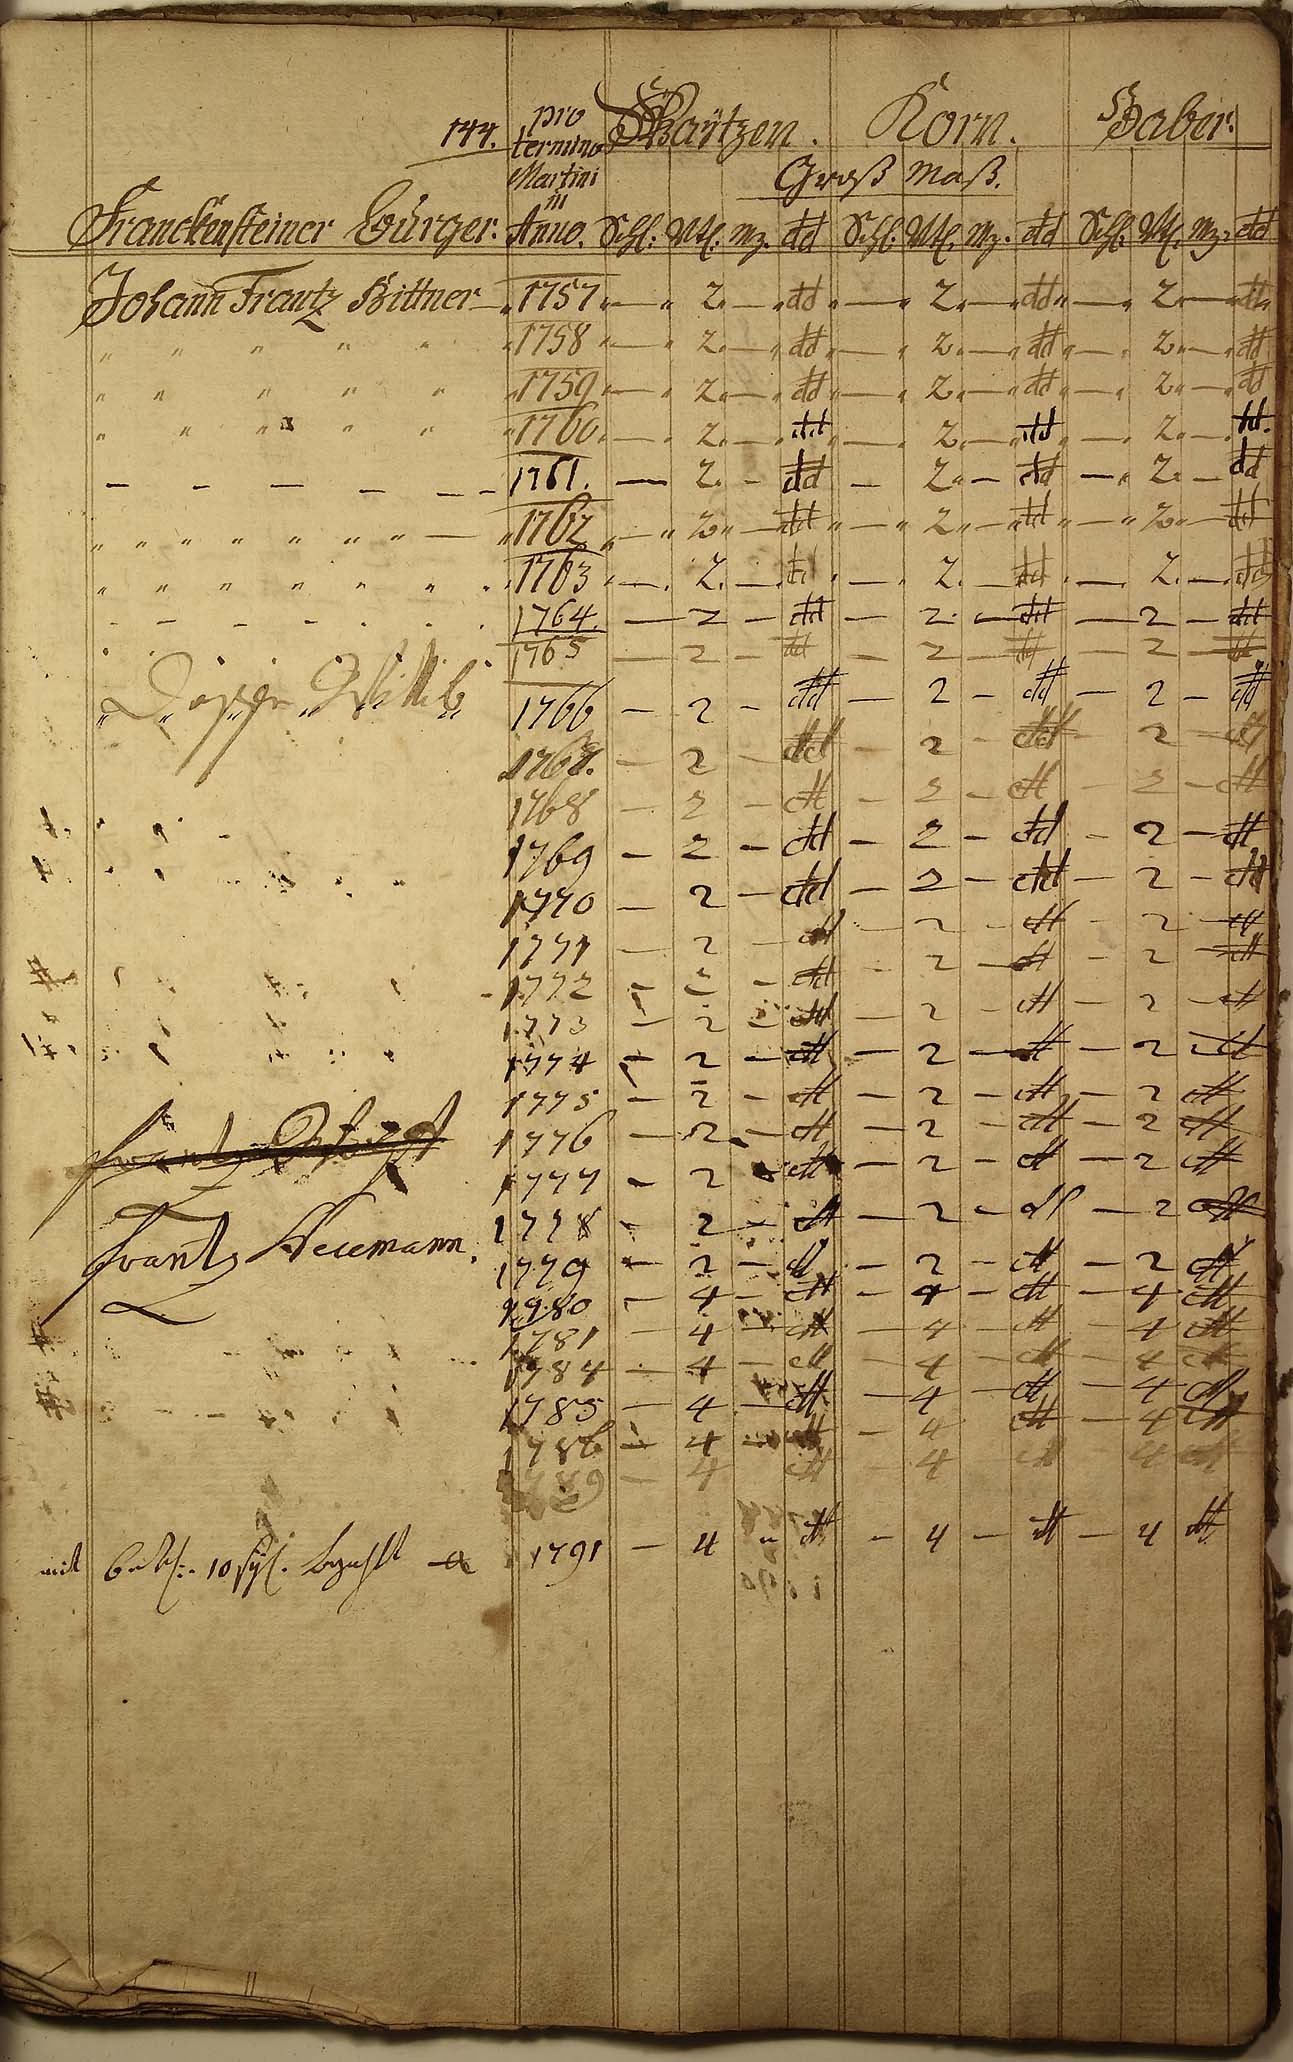 144. pro termino Martini in Anno. Waÿtzen. Korn. Haber.
Groß Maß.
Franckensteiner Bürger. Anno. Schl: Vtl. Mz. dd Schl: Vtl. Mz. dd Schl: Vtl. Mz: dd
Johann Frantz Bittner 1757 — 2 — dd — 2 — dd — 2 — dd
" " " " " 1758 — 2 — dd — 2 — dd — 2 — dd
" " " " " 1759 — 2 — dd — 2 — dd — 2 — dd
" " " " " 1760 — 2 — dd — 2 — dd — 2 — dd.
— — — — — 1761. — 2 — dd — 2 — dd — 2 — dd
" " " " " " " " — 1762 — 2 — dd — 2 — dd — 2 — dd
" " " " " " " 1763 — 2 — dd — 2 — dd — 2 — dd
1764. — 2 — dd — 2 — dd — 2 — dd
1765 — 2 — dd — 2 — dd — 2 — dd
1766 — 2 — dd — 2 — dd — 2 — dd
1767. — 2 — dd — 2 — dd — 2 — dd
1768 — 2 — dd — 2 — dd — 2 — dd
1769 — 2 — dd — 2 — dd — 2 — dd
1770 — 2 — dd — 2 — dd — 2 — dd
1771 — 2 — dd — 2 — dd — 2 — dd
1772 — 2 — dd — 2 — dd — 2 — dd
1773 — 2 — dd — 2 — dd — 2 — dd
1774 — 2 — dd — 2 — dd — 2 — dd
1775 — 2 — dd — 2 — dd — 2 dd
Frantz 1776 — 2 — dd — 2 — dd — 2 dd
1777 — 2 dd — 2 — dd — 2 dd
1778 — 2 — dd — 2 — dd — 2 dd
Frantz Neumann. 1779 — 2 — dd — 2 — dd — 2 dd
1780 — 4 — dd — 4 — dd — 4 dd
1781 — 4 — dd — 4 — dd — 4 dd
1784 — 4 — dd — 4 — dd — 4 dd
1785 — 4 — dd — 4 — dd — 4 dd
1786 — 4 — dd — 4 dd — 4 dd
4 dd — 4 dd 4 dd
mit 10 bezahlt 1791 — 4 " dd — 4 — dd — 4 dd